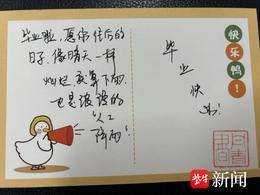 毕业啦，愿你往后的
日子，像晴天一样
灿烂，就算下雨，
也是浪漫的
“人工
降雨”
毕业快乐！
快乐鸭！
紫牛新闻